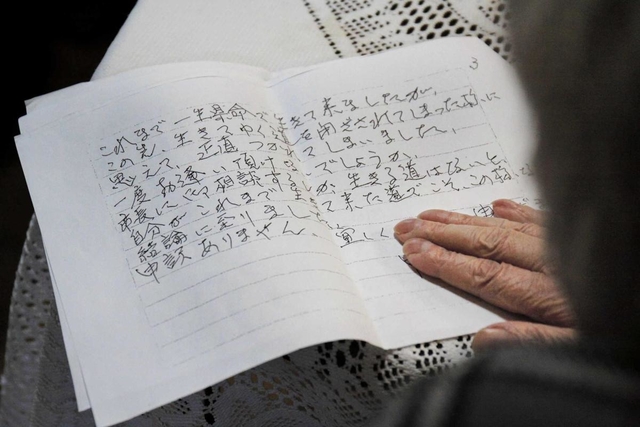 3
これまで一生県命で きて来ましたが、
この先、生きてゆく を閉ざされてしまった様に
思えて、正直つかれてしまいました。
一度 頂け でしょうか
市長に 相談する か、生きる道はないと
自分がこれまで生きて来た道でこそ、この様な
結論に至りまし 宜しく 申
申訳ありません、